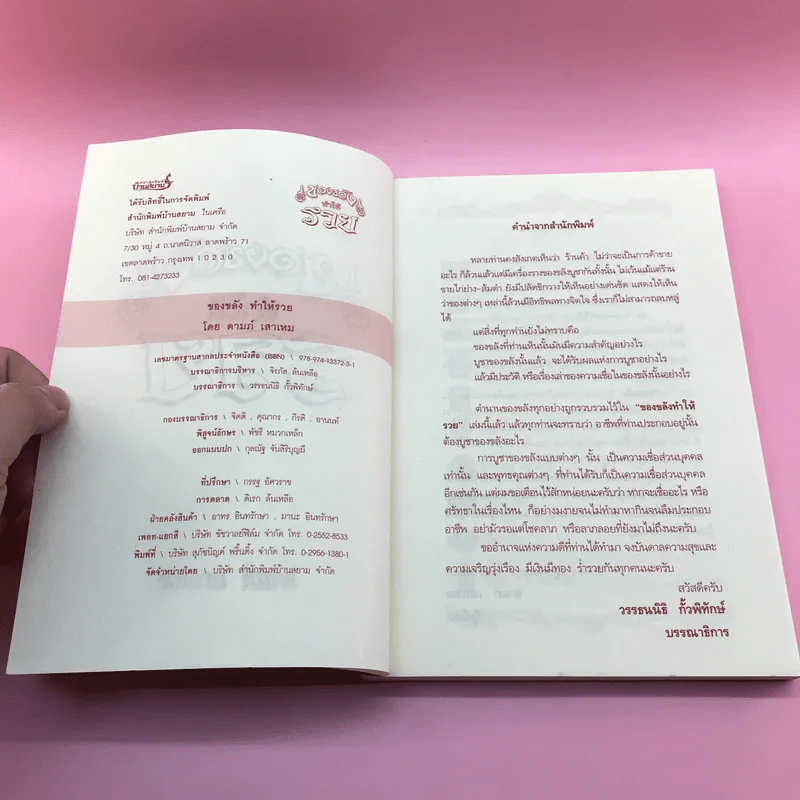 สำนักพิมพ์
บ้านสยาม
ได้รับสิทธิ์ในการจัดพิมพ์
สำนักพิมพ์บ้านสยาม ในเครือ
บริษัท สำนักพิมพ์บ้านสยาม จำกัด
7/30 หมู่ 4 ถ.นาคนิวาส ลาดพร้าว 71
เขตลาดพร้าว กรุงเทพ 10230
โทร. 081-4273233
ของขลัง
ทำให้
รวย
ของขลัง ทำให้รวย
โดย คามภ์ เสาเหม
เลขมาตรฐานสากลประจำหนังสือ (ISBN) \ 978-974-13372-3-1
บรรณาธิการบริหาร \ จิรภัส ล้นเหลือ
บรรณาธิการ \ วรรธนนิธิ กั้วพิทักษ์
กองบรรณาธิการ \ จิตติ . คุณากร . กีรติ . อานนท์
พิสูจน์อักษร \ พัชรี หมวกเหล็ก
ออกแบบปก \ กุลณัฐ จันสิริบุญมี
ที่ปรึกษา \ กรรฐ อัศวราช
การตลาด \ ดิเรก ล้นเหลือ
ฝ่ายคลังสินค้า \ อาทร อินทรักษา . มานะ อินทรักษา
เพลท-แยกสี \ บริษัท ชัชวาลย์ฟิล์ม จำกัด โทร. 0-2552-8533
พิมพ์ที่ \ บริษัท สุภัชนิญค์ พริ้นติ้ง จำกัด โทร. 0-2956-1380-1
จัดจำหน่ายโดย \ บริษัท สำนักพิมพ์บ้านสยาม จำกัด
คำนำจากสำนักพิมพ์
หลายท่านคงสังเกตเห็นว่า ร้านค้า ไม่ว่าจะเป็นการค้าขาย
อะไร ก็ล้วนแล้วแต่มีเครื่องรางของขลังบูชากันทั้งนั้น ไม่เว้นแม้แต่ร้าน
ขายไก่ย่าง-ส้มตำ ยังมีปลัดขิกวางให้เห็นอย่างเด่นชัด แสดงให้เห็น
ว่าของต่างๆ เหล่านี้ล้วนมีอิทธิพลทางจิตใจ ซึ่งเราก็ไม่สามารถลบหลู่
ได้
แต่สิ่งที่ทุกท่านยังไม่ทราบคือ
ของขลังที่ท่านเห็นนั้นมันมีความสำคัญอย่างไร
บูชาของขลังนั้นแล้ว จะได้รับผลแห่งการบูชาอย่างไร
แล้วมีประวัติ หรือเรื่องเล่าของความเชื่อในของขลังนั้นอย่างไร
ตำนานของขลังทุกอย่างถูกรวบรวมไว้ใน "ของขลังทำให้
รวย" เล่มนี้แล้ว แล้วทุกท่านจะทราบว่า อาชีพที่ท่านประกอบอยู่นั้น
ต้องบูชาของขลังอะไร
การบูชาของขลังแบบต่างๆ นั้น เป็นความเชื่อส่วนบุคคล
เท่านั้น และพุทธคุณต่างๆ ที่ท่านได้รับก็เป็นความเชื่อส่วนบุคคล
อีกเช่นกัน แต่ผมขอเตือนไว้สักหน่อยนะครับว่า หากจะเชื่ออะไร หรือ
ศรัทธาในเรื่องไหน ก็อย่างมงายจนไม่ทำมาหากินจนลืมประกอบ
อาชีพ อย่ามัวรอแต่โชคลาภ หรือลาภลอยที่ยังมาไม่ถึงนะครับ
ขออำนาจแห่งความดีที่ท่านได้ทำมา จงบันดาลความสุขและ
ความเจริญรุ่งเรือง มีเงินมีทอง ร่ำรวยกันทุกคนนะครับ
สวัสดีครับ
วรรธนนิธิ กั้วพิทักษ์
บรรณาธิการ